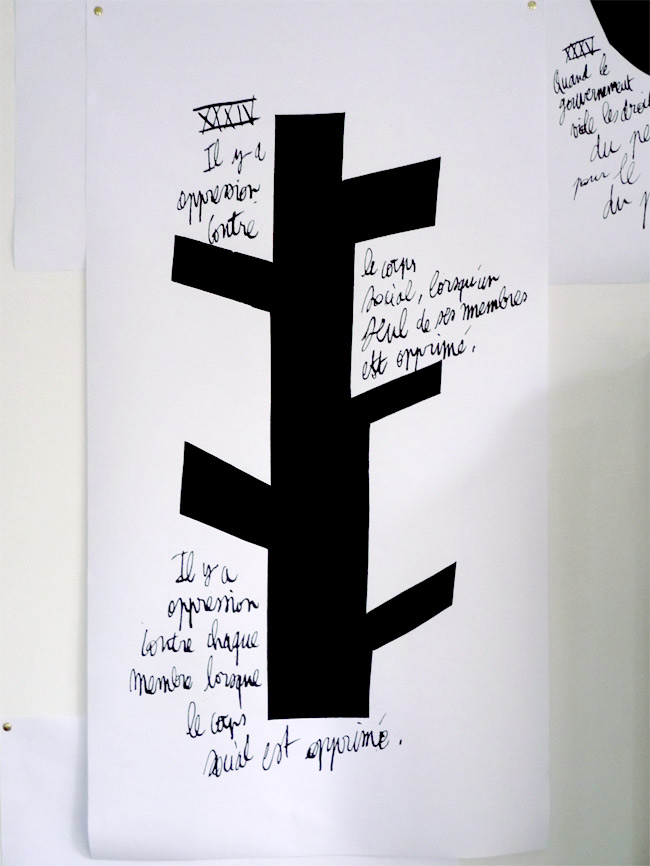 XXXIV
Il y a
oppression
contre
le corps
social, lorsqu'un
seul de ses membres
est opprimé.
Il y a
oppression
contre chaque
membre lorsque
le corps
social est opprimé.
XXXV
Quand le
gouvernement
viole les droi
du pe
pour le
du p